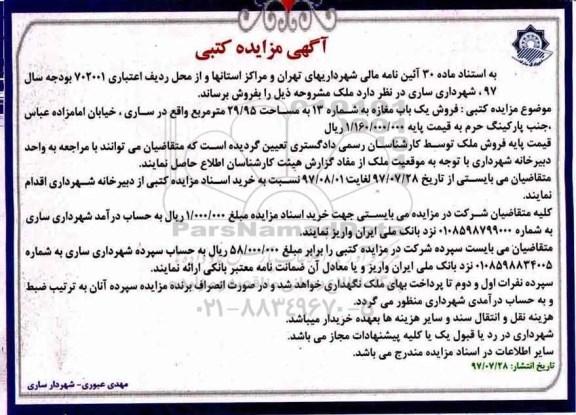 آگهی مزایده کتبی
به استناد ماده ۳۰ آئین نامه مالی شهرداریهای تهران و مراکز استانها و از محل ردیف اعتباری ۷۰۲۰۰۱ بودجه سال
۹۷ ، شهرداری ساری در نظر دارد ملک مشروحه ذیل را بفروش برساند.
موضوع مزایده کتبی : فروش یک باب مغازه به شماره ۱۳ به مساحت ۲۹/۹۵ مترمربع واقع در ساری ، خیابان امامزاده عباس
،جنب پارکینگ حرم به قیمت پایه ۱/۱۶۰/۰۰۰/۰۰۰ ریال
قیمت پایه فروش ملک توسط کارشناسان رسمی دادگستری تعیین گردیده است که متقاضیان می توانند با مراجعه به واحد
دبیرخانه شهرداری با توجه به موقعیت ملک از مفاد گزارش هیئت کارشناسان اطلاع حاصل نمایند.
متقاضیان می بایستی از تاریخ ۹۷/۰۷/۲۸ لغایت ۹۷/۰۸/۰۱ نسبت به خرید اسناد مزایده کتبی از دبیرخانه شهرداری اقدام
نمایند.
کلیه متقاضیان شرکت در مزایده می بایستی جهت خرید اسناد مزایده مبلغ ۱/۰۰۰/۰۰۰ ریال به حساب درآمد شهرداری ساری
به شماره ۰۱۰۸۵۹۸۷۹۹۰۰۰ نزد بانک ملی ایران واریز نمایند.
متقاضیان می بایست سپرده شرکت در مزایده کتبی را برابر مبلغ ۵۸/۰۰۰/۰۰۰ ریال به حساب سپرده شهرداری ساری به شماره
۰۱۰۸۵۹۸۸۳۴۰۰۵ نزد بانک ملی ایران واریز و یا معادل آن ضمانت نامه معتبر بانکی ارائه نمایند.
سپرده نفرات اول و دوم تا پرداخت بهای ملک نگهداری خواهد شد و در صورت انصراف برنده مزایده سپرده آنان به ترتیب ضبط
و به حساب درآمدی شهرداری منظور می گردد.
هزینه نقل و انتقال سند و سایر هزینه ها بعهده خریدار میباشد.
شهرداری در رد یا قبول یک یا کلیه پیشنهادات مجاز می باشد.
سایر اطلاعات در اسناد مزایده مندرج می باشد.
تاریخ انتشار: ۹۷/۰۷/۲۸
مهدی عبوری- شهردار ساری
ParsNamadData
۰۲۱-۸۸۳۴۹۶۷۰-۵